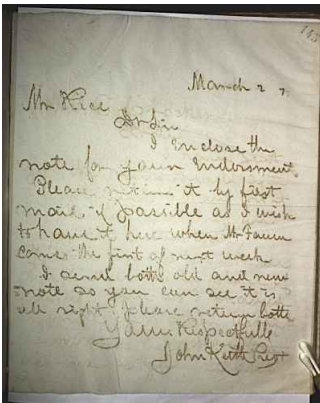 145
March 27
Mr Rice
Dr Sir
I Enclose the
note for your Endorsment.
Please return it by first
mail if possible as I wish
to have it here when Mr
comes the first of next week
I send both old and new
note so you can see it is
all right Please return both
Yours Respectfully
John Keith Prest